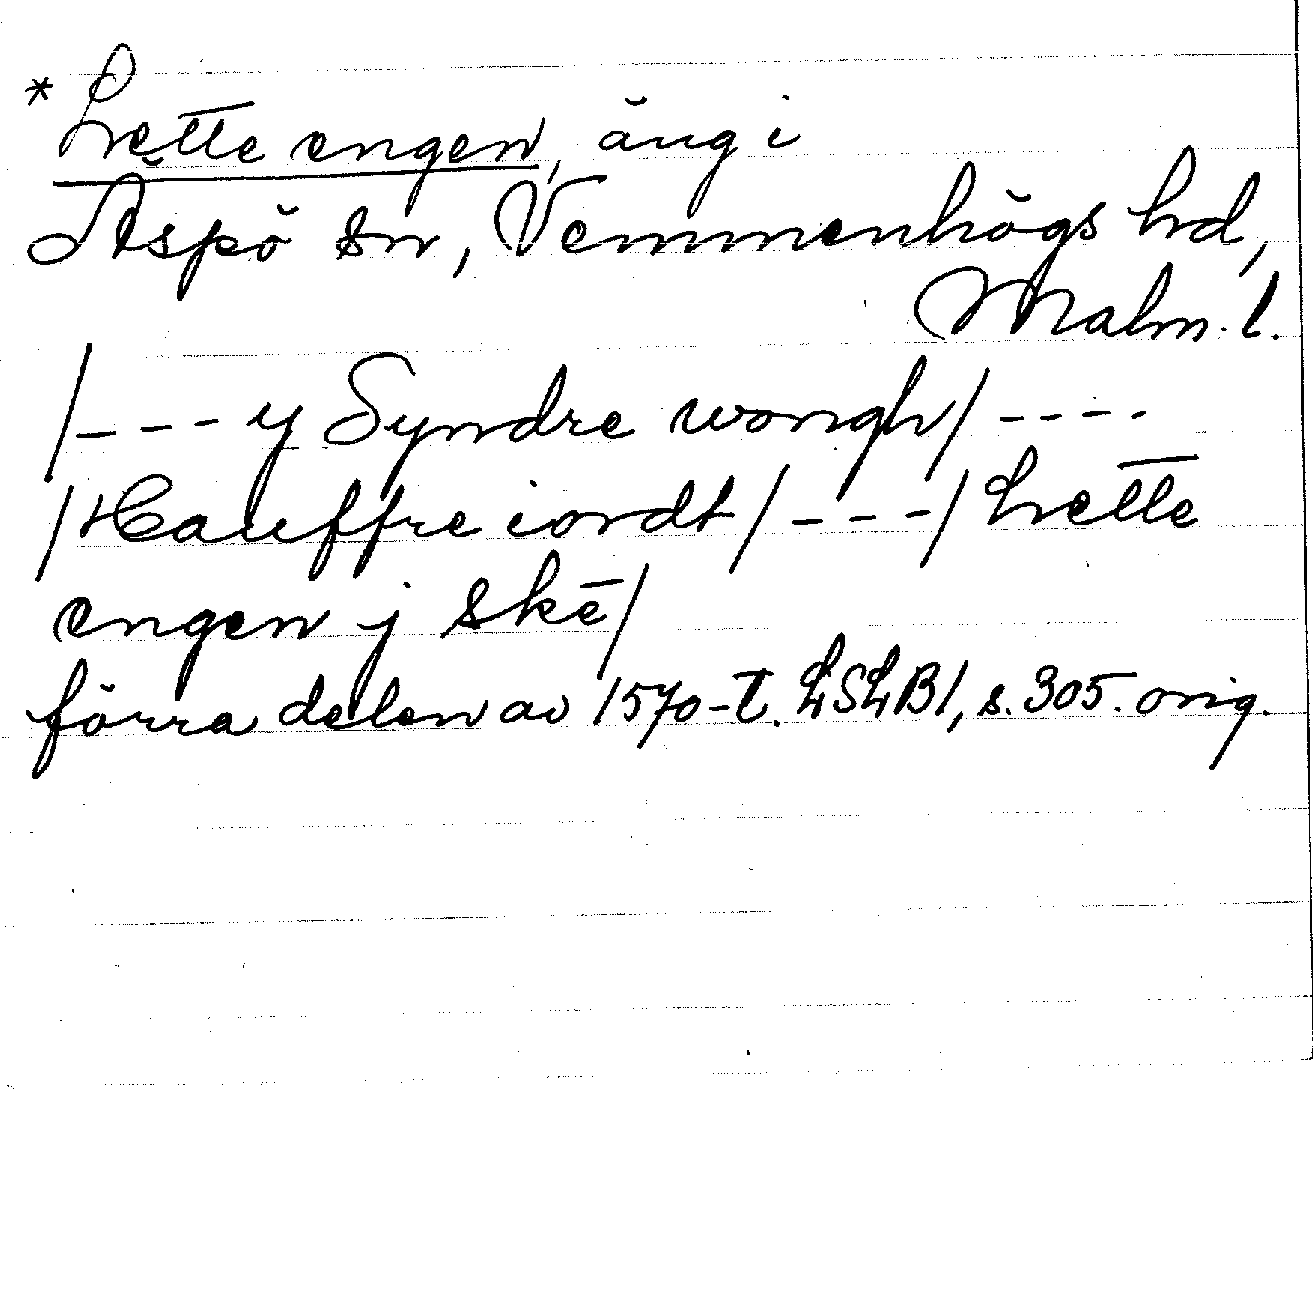 * Lętt̅e engen, äng i
Aspö sn, Vemmenhögs hd,
Malm. l.
/---y Syndre wongh/----
/Hauffre iordt/---/Lett̅e
engen j skē/
förra delen av 1570-t. LSLB1, s. 305. orig.